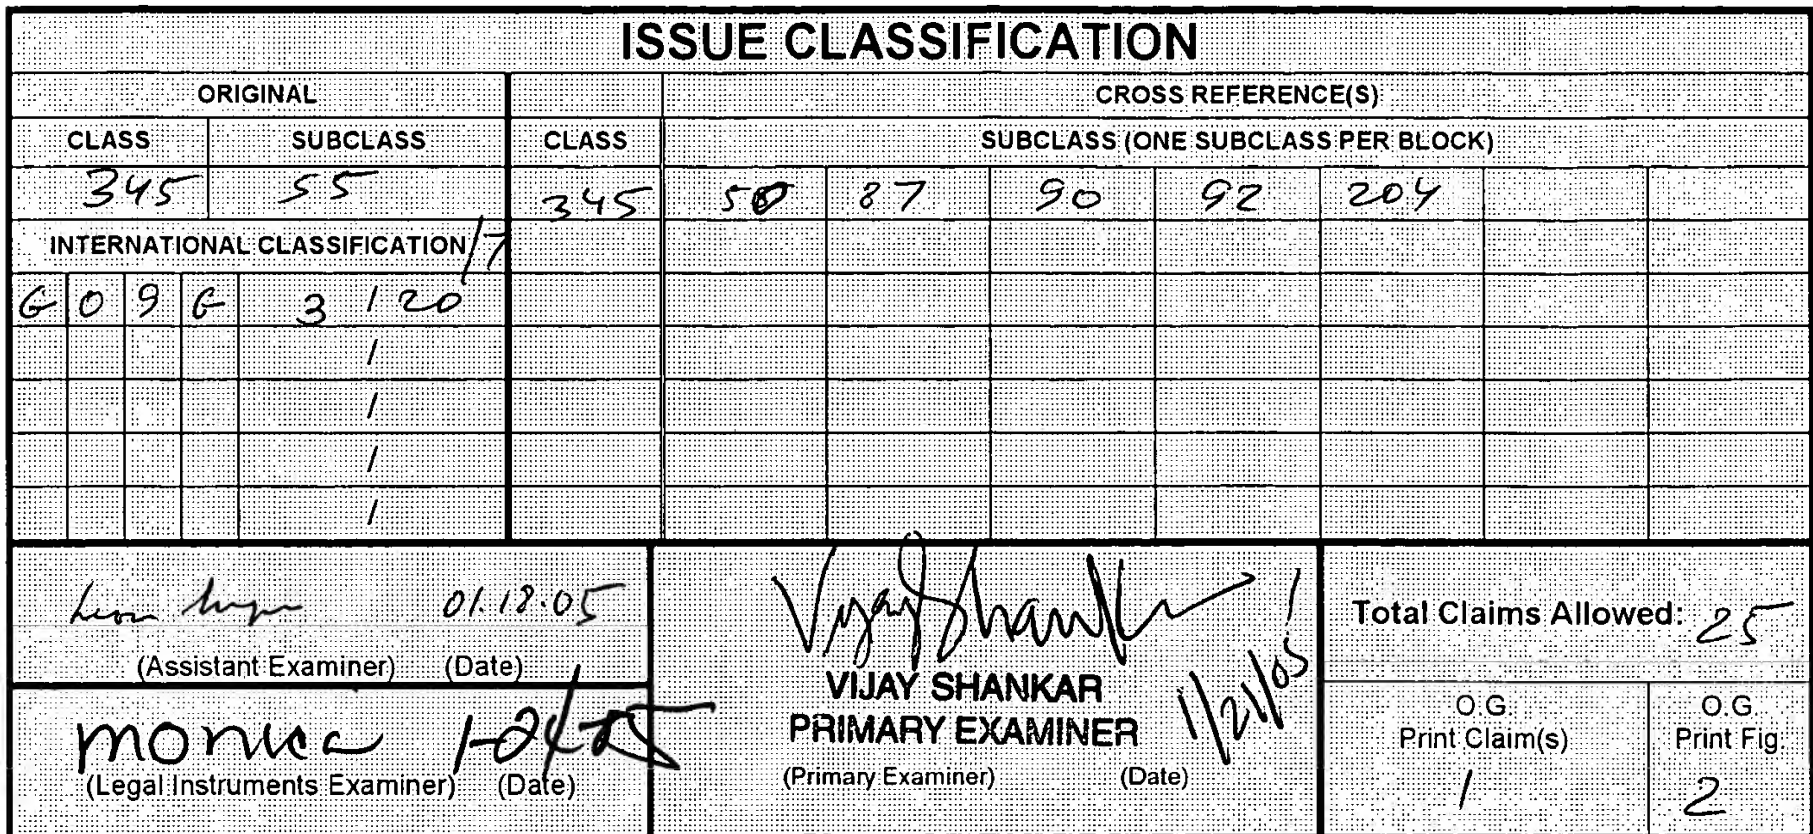 ISSUE CLASSIFICATION
ORIGINAL CROSS REFERENCE(S)
CLASS SUBCLASS CLASS SUBCLASS (ONE SUBCLASS PER BLOCK)
345 55 345 87 90 92 204
INTERNATIONAL CLASSIFICATION /7
G 0 9 G 3 / 20
/
/
/
/
01.18.05
(Assistant Examiner) (Date)
monica
(Legal Instruments Examiner) (Date)
Vijay Shankar
VIJAY SHANKAR
PRIMARY EXAMINER 1/21/05
(Primary Examiner) (Date)
Total Claims Allowed: 25
O.G. Print Claim(s)
1
O.G. Print Fig.
2